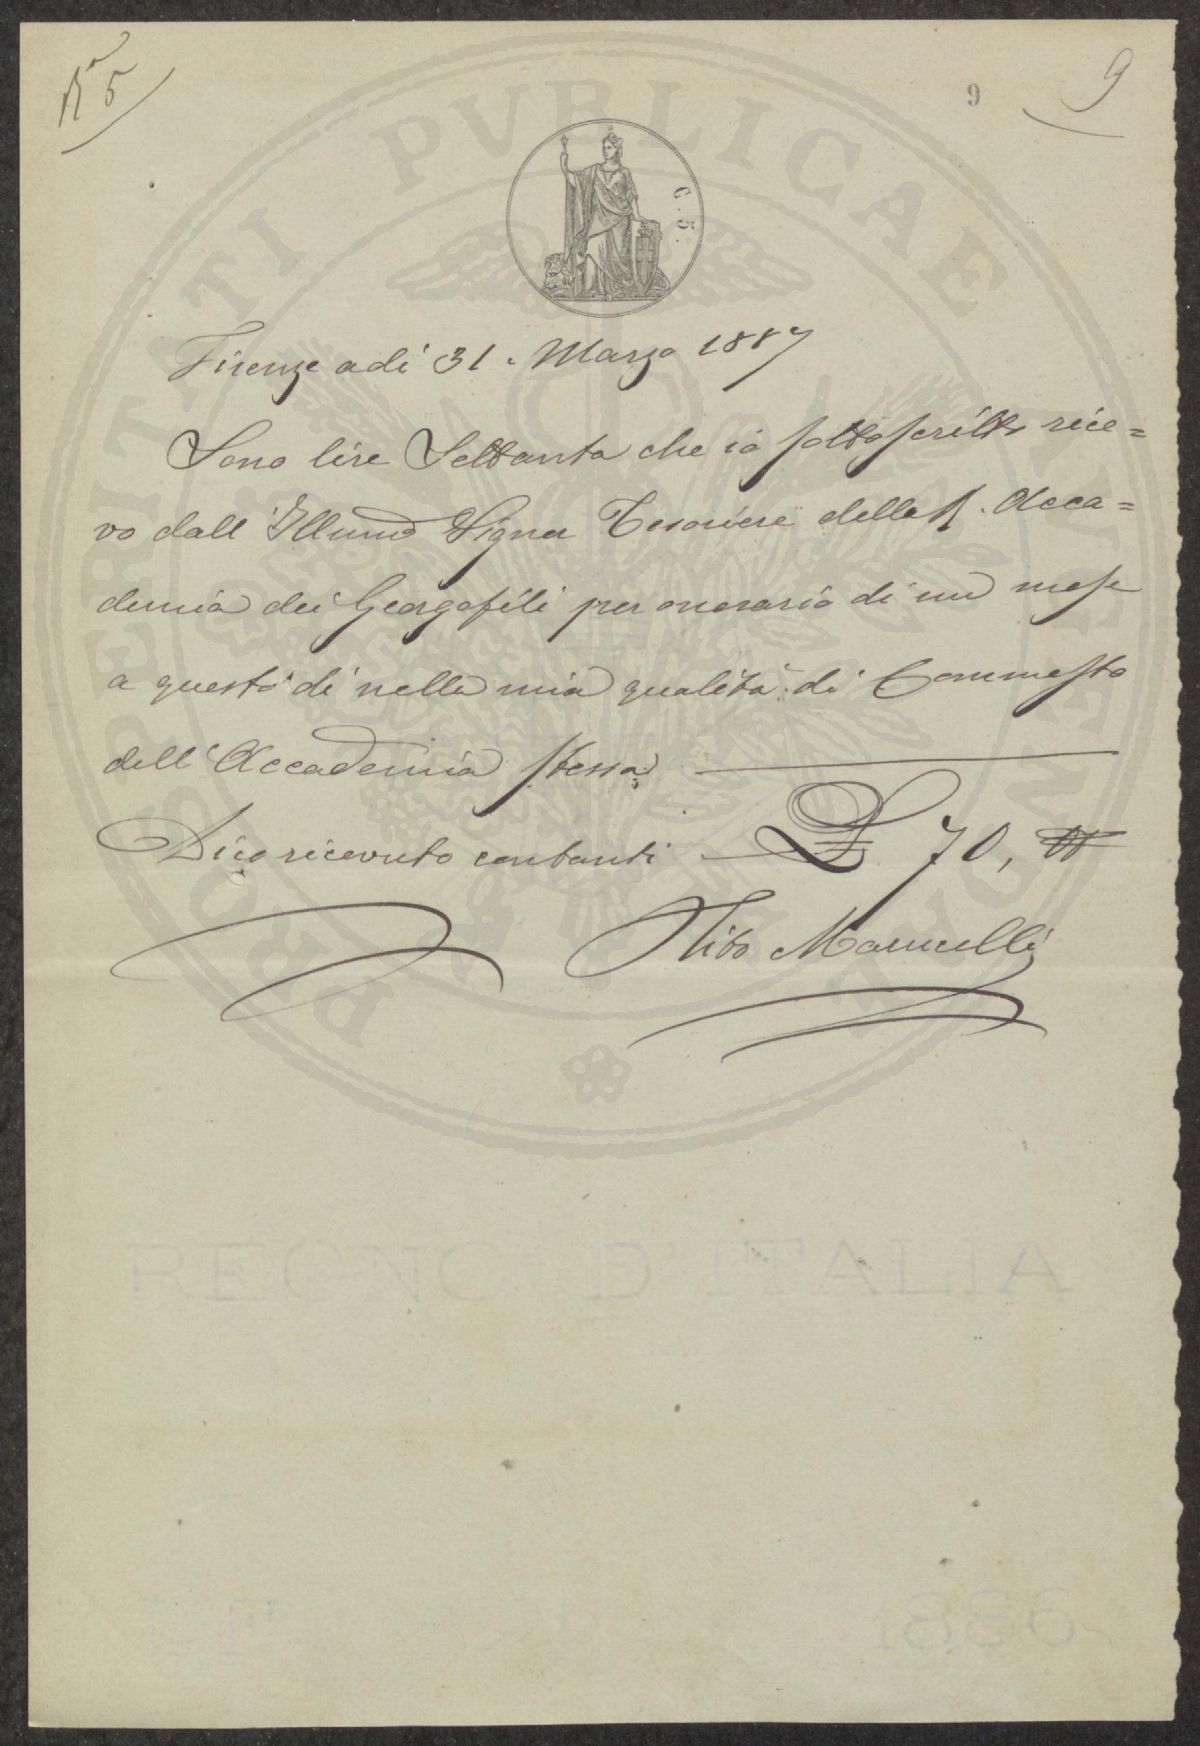 N° 5
9
9
PROSPERITATI PVBLICAE
G. 5.
Firenze a di 31. Marzo 1887
Sono lire Settanta che io sottoscritto rice=
vo dall' Illmo Signor Tesoriere della R. Acca=
demia dei Georgofili per onorario di un mese
a questo dì nella mia qualità di Commesso
dell' Accademia stessa
Dico ricevuto contanti L 70,
Marucelli
REGNO D'ITALIA
1886